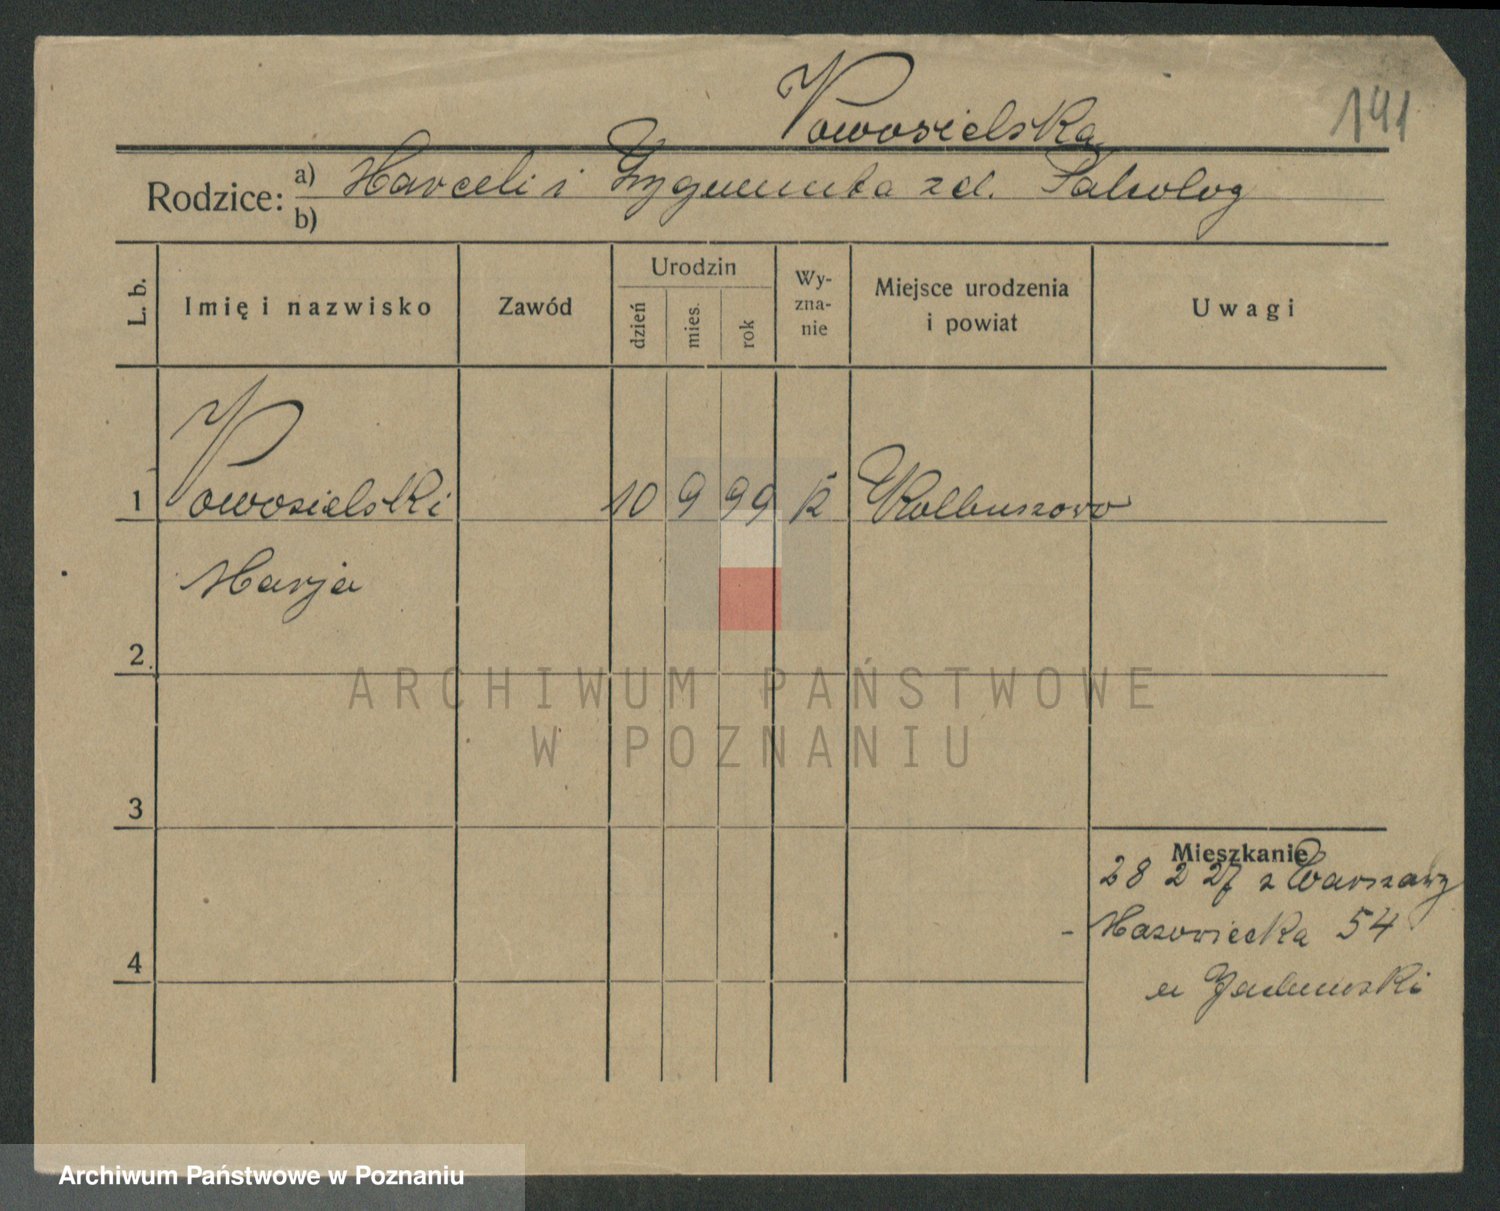 Nowosielska
141
Rodzice: a) Marceli i Zygmunta zd. Paleolog
b)
L. b.
Imię i nazwisko
Zawód
Urodzin
dzień
mies.
rok
Wy-
zna-
nie
Miejsce urodzenia
i powiat
Uwagi
1 Nowosielski 10 9 99 k Kolbuszowo
Marja
2
3
4
Mieszkanie
28 2 27 z Warszawy
Mazowiecka 54
u
ARCHIWUM PAŃSTWOWE
W POZNANIU
Archiwum Państwowe w Poznaniu